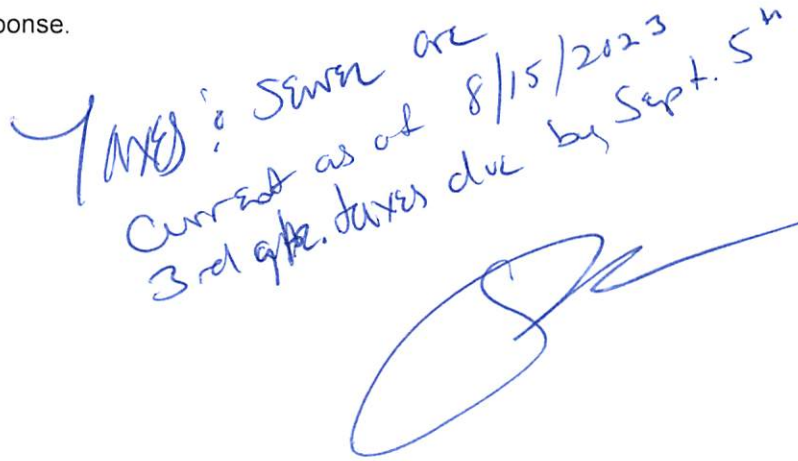 ponse.
Taxes & Sewer are
Current as of 8/15/2023
3rd qtr. taxes due by Sept. 5th